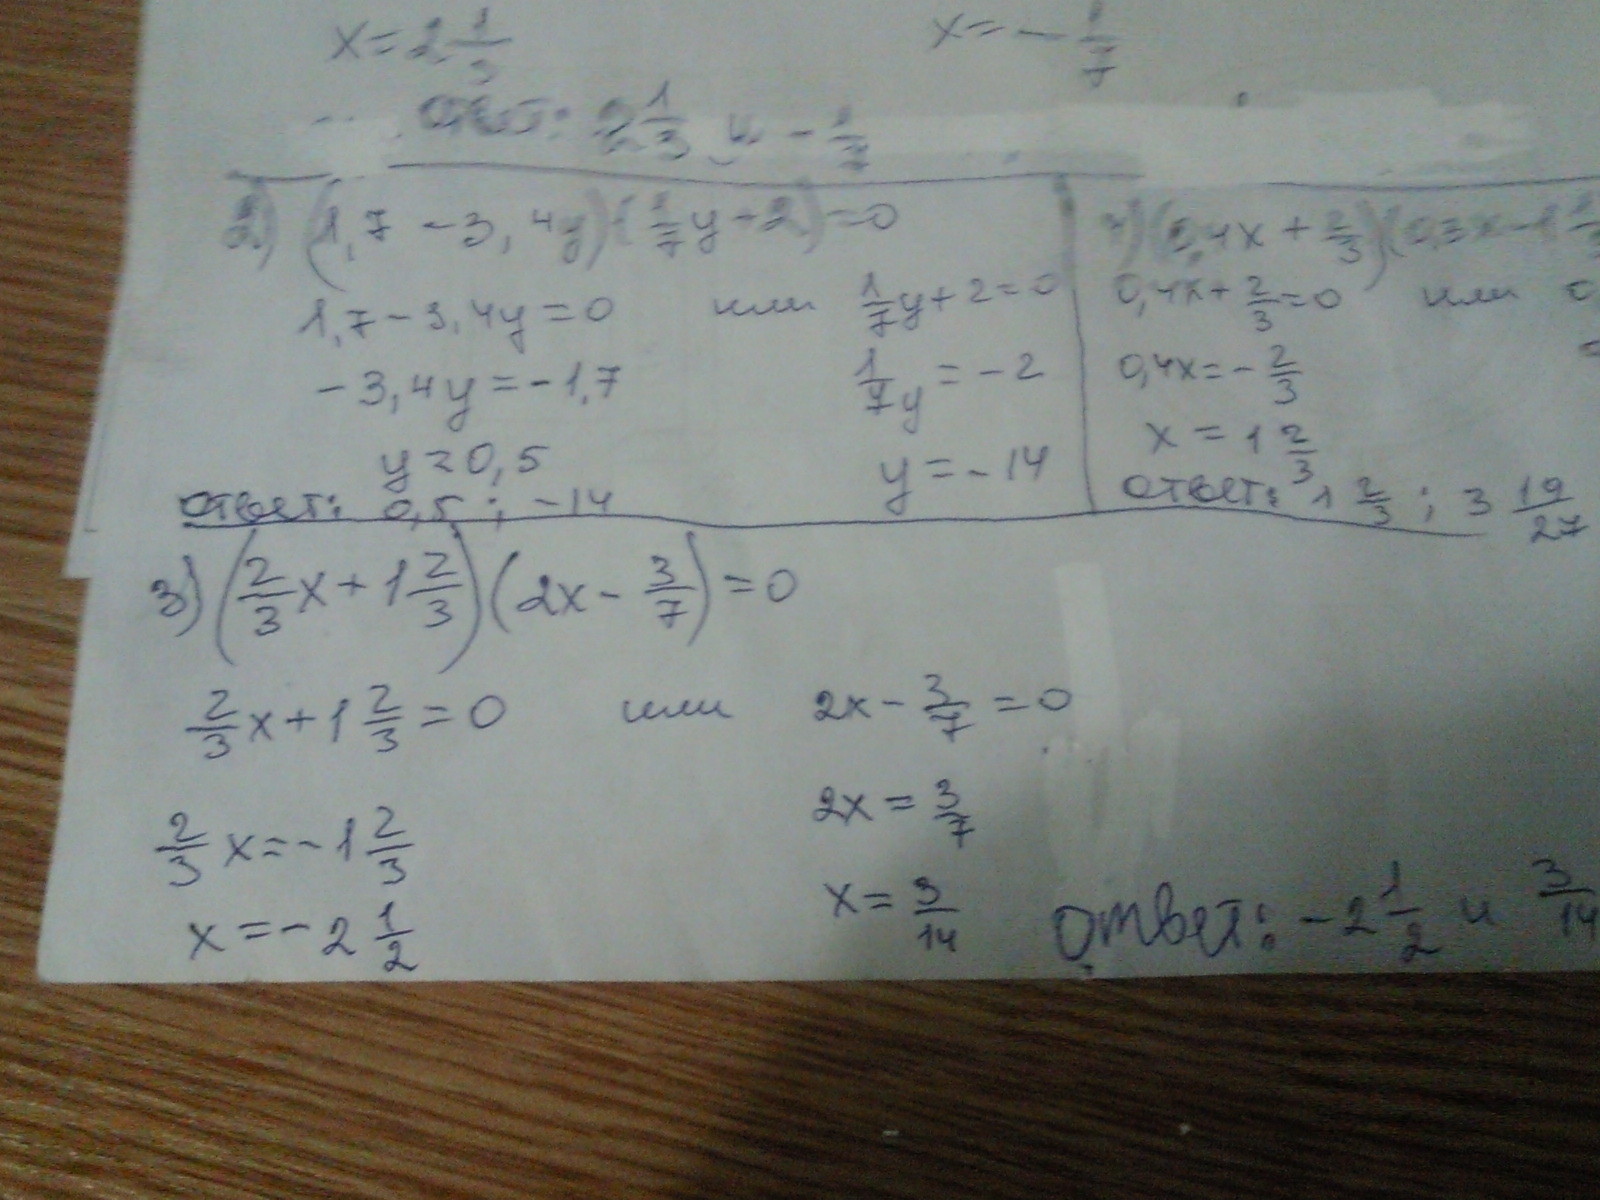 x = 2 1/3 x = - 1/7
ответ: 2 1/3 и - 1/7
2) (1,7 - 3,4y)(1/7 y + 2) = 0
1,7 - 3,4y = 0 или 1/7 y + 2 = 0
-3,4y = -1,7 1/7 y = -2
y = 0,5 y = -14
ответ: 0,5 ; -14
4) (0,4x + 2/3)(0,3x - 1
0,4x + 2/3 = 0 или 0
0,4x = - 2/3
x = 1 2/3
ответ: 1 2/3 ; 3 19/27
3) (2/3 x + 1 2/3)(2x - 3/7) = 0
2/3 x + 1 2/3 = 0 или 2x - 3/7 = 0
2/3 x = -1 2/3 2x = 3/7
x = -2 1/2 x = 3/14
ответ: -2 1/2 и 3/14